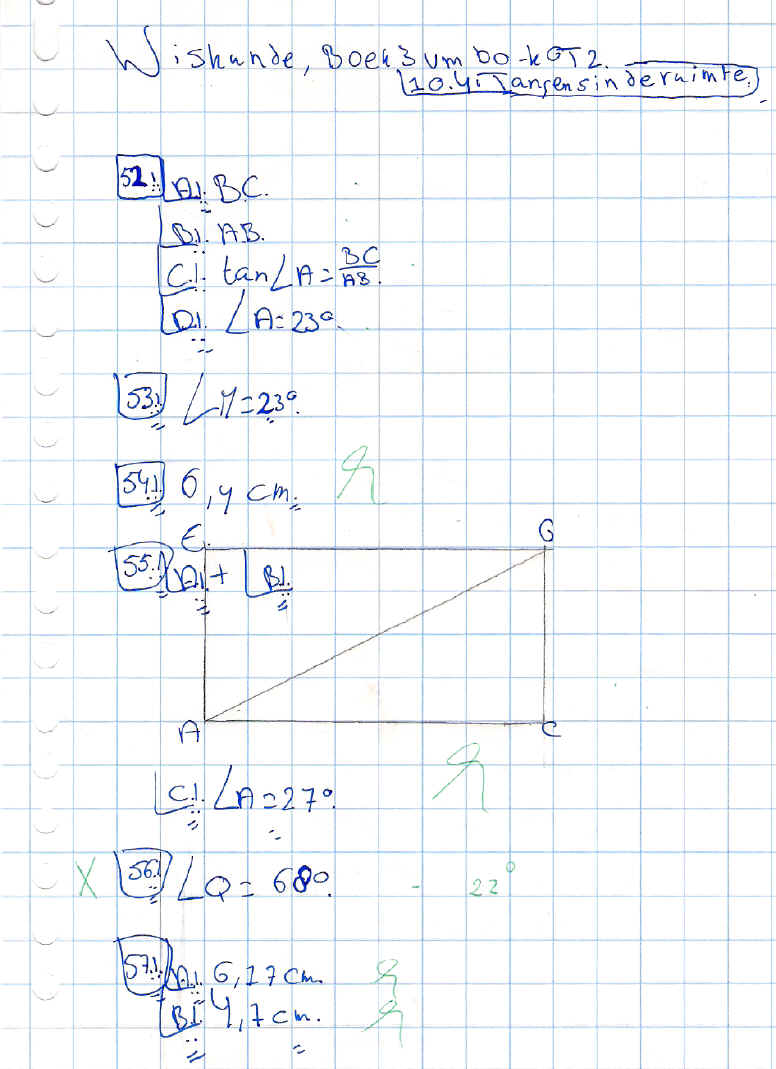 Wiskunde, Boek 3 vmbo-kGT 2.
10.4. Tangens in de ruimte.
52. A. BC.
B. AB.
C. tan∠A = BC/AB.
D. ∠A = 23°.
53. ∠M = 23°.
54. 6,4 cm.
E
G
55. A. + B.
A
C
C. ∠A = 27°.
X 56. ∠Q = 68°. - 22°
57. A. 6,17 cm.
B. 4,7 cm.